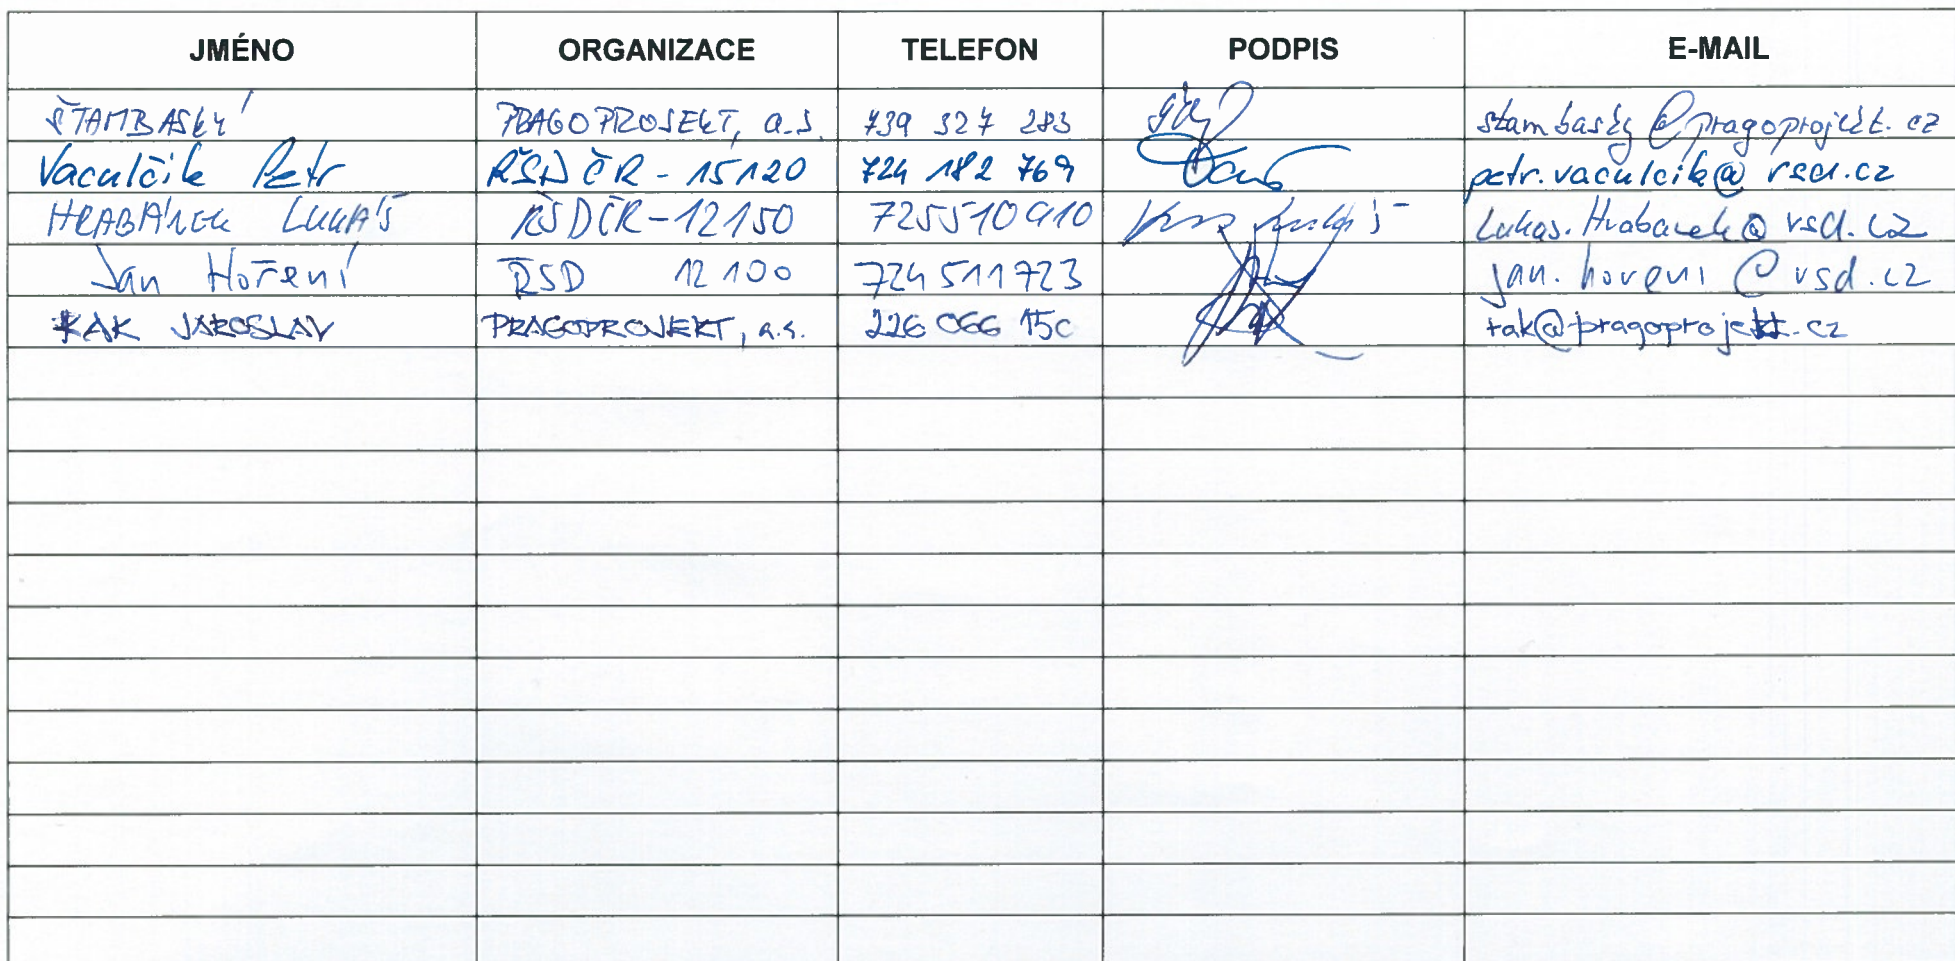 JMÉNO ORGANIZACE TELEFON PODPIS E-MAIL
ŠTAMBASKÝ PRAGOPROJEKT, a.s. 739 327 283 stambasky@pragoprojekt.cz
Vaculčík Petr ŘSD ČR - 15120 724 182 769 petr.vaculcik@rsd.cz
HRABÁNEK LUKÁŠ ŘSD ČR - 12150 725510910 Lukas.Hrabanek@rsd.cz
Jan Hoření ŘSD 12 100 724 511 723 jan.horeni@rsd.cz
JAROSLAV PRAGOPROJEKT, a.s. 226 066 150 rak@pragoprojekt.cz